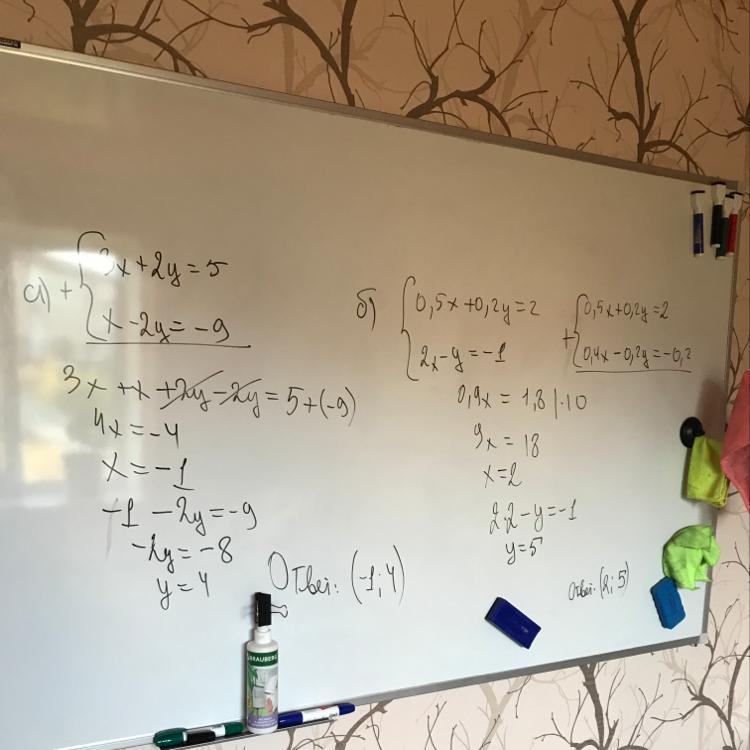 а) + { 3x+2y=5
x-2y=-9
3x+x+2y-2y=5+(-9)
4x=-4
x=-1
-1-2y=-9
-2y=-8
y=4
Ответ: (-1; 4)
б) { 0,5x+0,2y=2
2x-y=-1
+ { 0,5x+0,2y=2
0,4x-0,2y=-0,2
0,9x=1,8 |·10
9x=18
x=2
2·2-y=-1
y=5
Ответ: (2; 5)
BRAUBERG